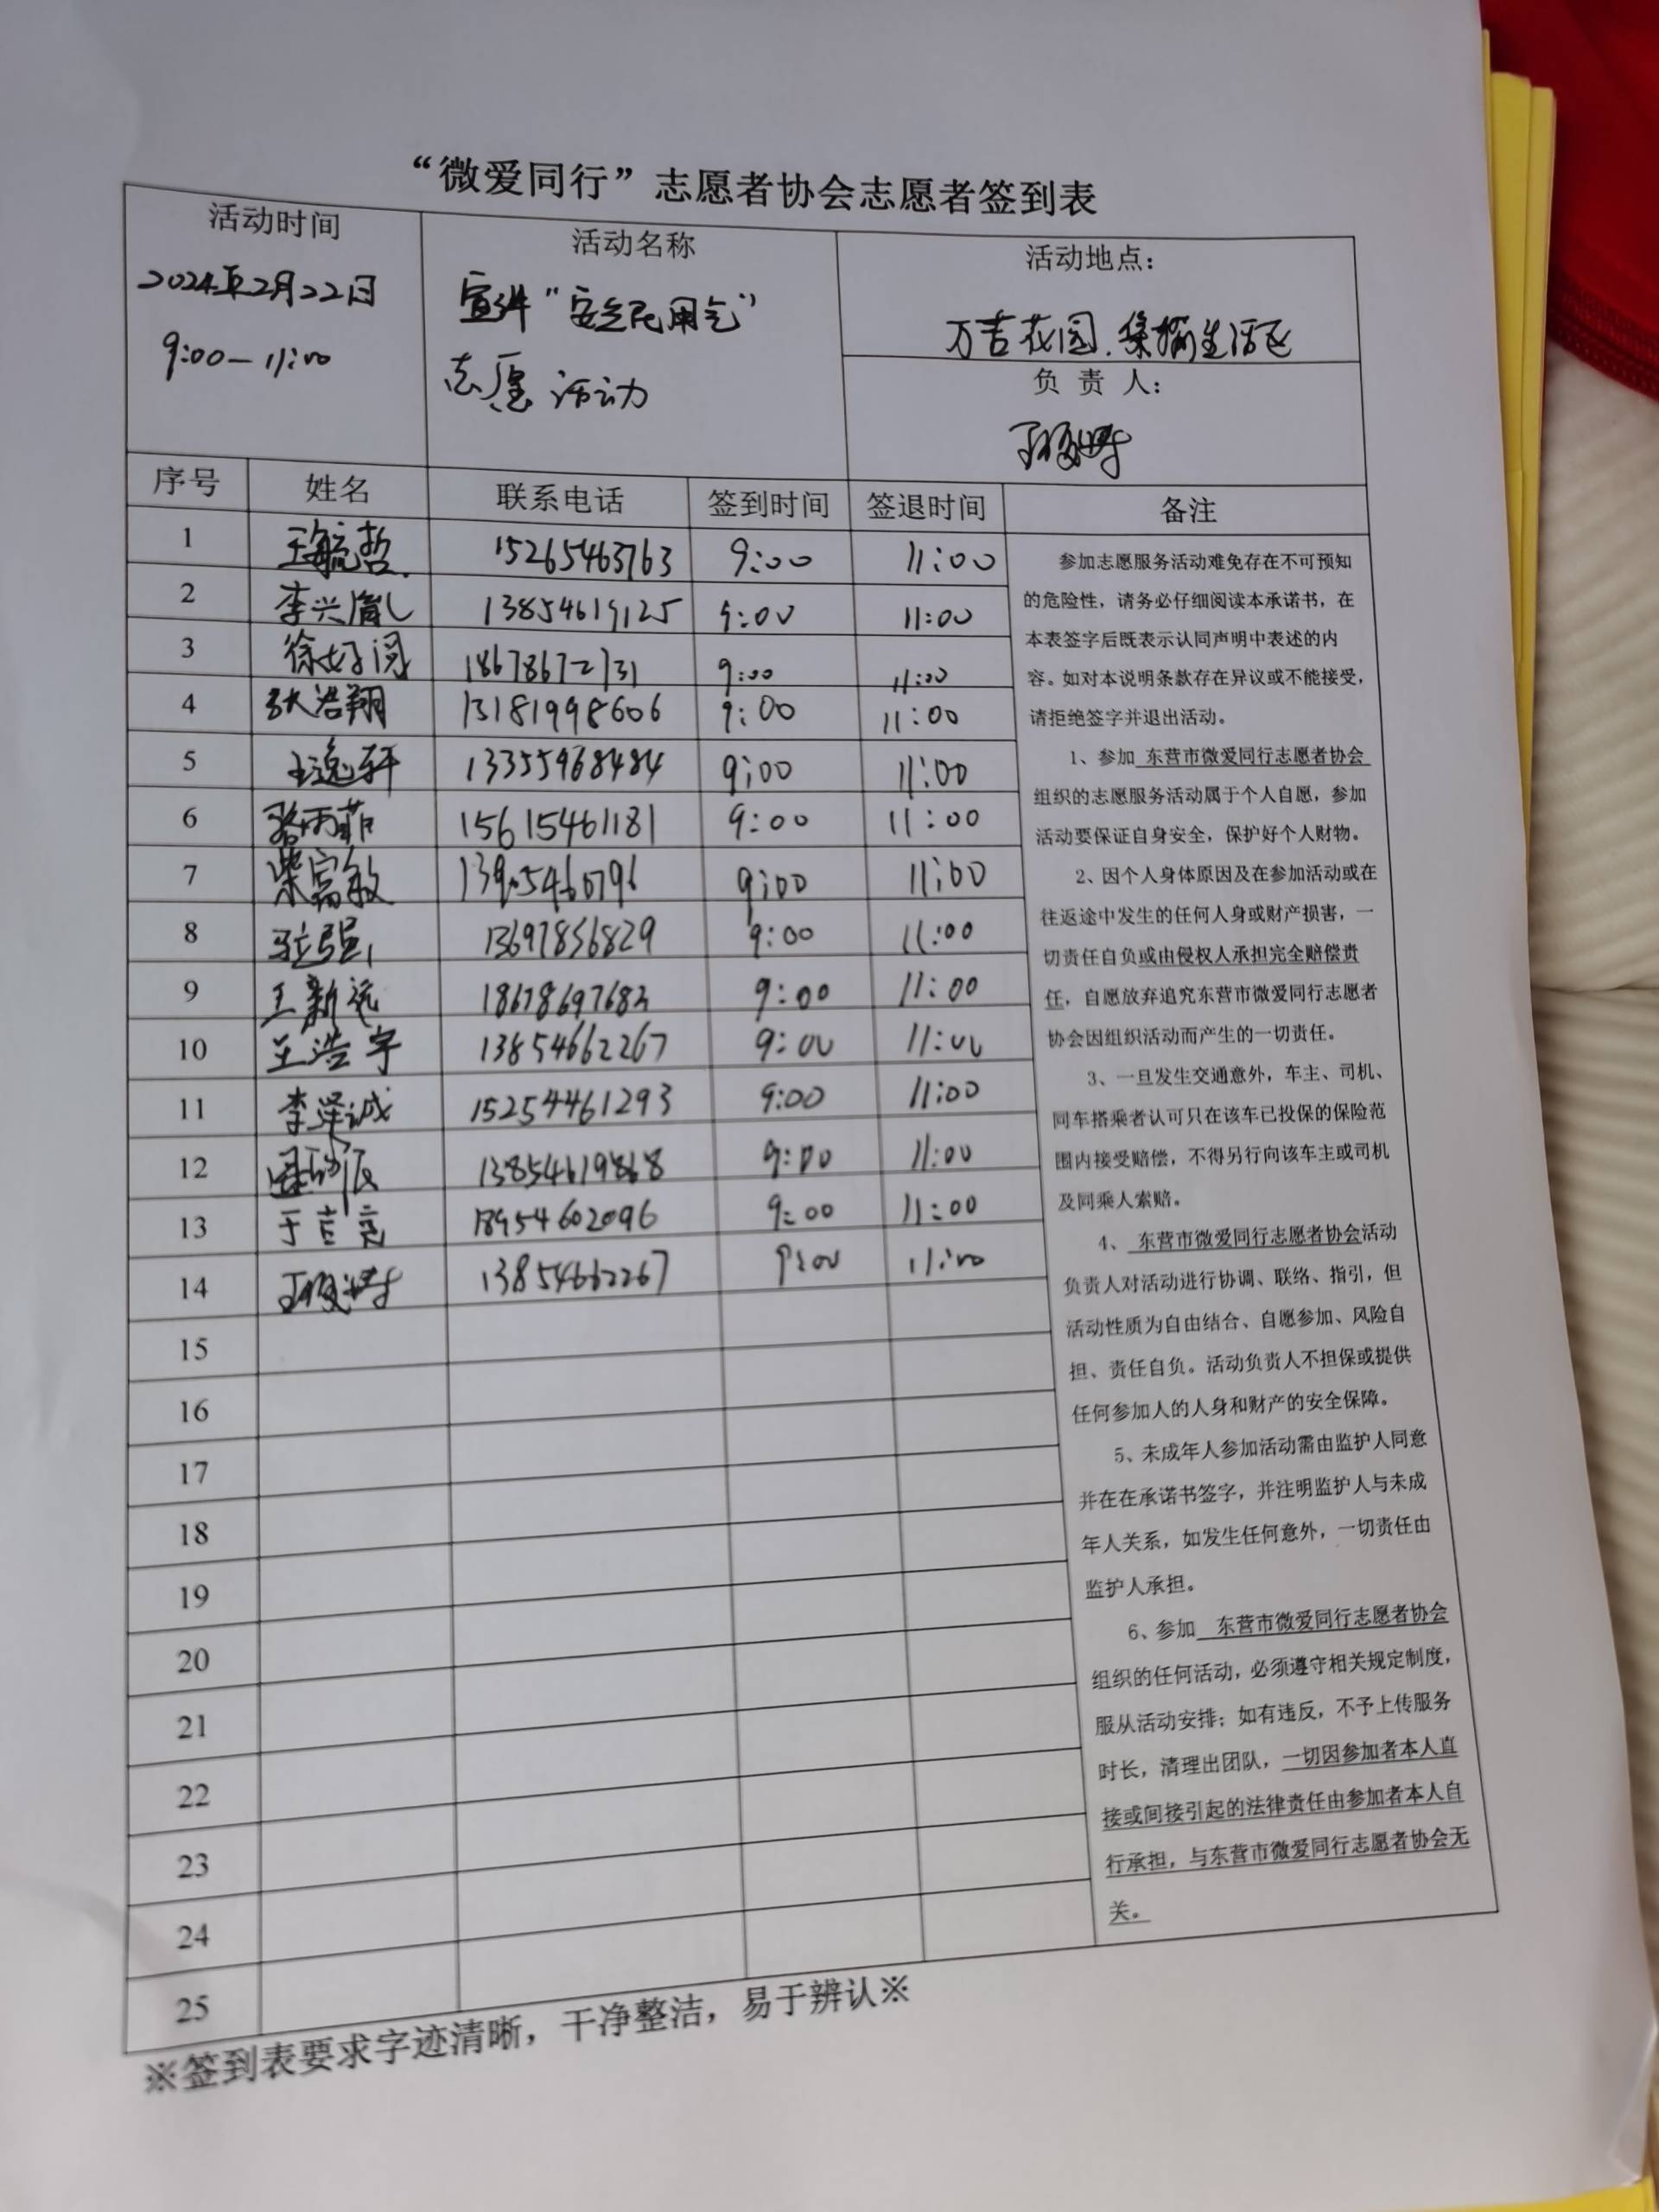 “微爱同行”志愿者协会志愿者签到表
活动时间 活动名称 活动地点：
2024年2月22日 宣讲“安全民用气” 万吉花园.集输生活区
9:00—11:00 志愿活动 负责人：
序号 姓名 联系电话 签到时间 签退时间 备注
1 王毓哲 15265463763 9:00 11:00
2 李兴胤 13854619125 9:00 11:00
3 徐好阅 18678672731 9:00 11:00
4 张浩翔 13181998606 9:00 11:00
5 王逸轩 13355968484 9:00 11:00
6 骆雨菲 15615461181 9:00 11:00
7 13905460796 9:00 11:00
8 13697856829 9:00 11:00
9 王新远 18678697683 9:00 11:00
10 王浩宇 13854662267 9:00 11:00
11 李泽诚 15254461293 9:00 11:00
12 13854619868 9:00 11:00
13 于吉亮 18954602096 9:00 11:00
14 13854662267 9:00 11:00
15
16
17
18
19
20
21
22
23
24
25
参加志愿服务活动难免存在不可预知
的危险性，请务必仔细阅读本承诺书，在
本表签字后既表示认同声明中表述的内
容。如对本说明条款存在异议或不能接受，
请拒绝签字并退出活动。
1、参加 东营市微爱同行志愿者协会
组织的志愿服务活动属于个人自愿，参加
活动要保证自身安全，保护好个人财物。
2、因个人身体原因及在参加活动或在
往返途中发生的任何人身或财产损害，一
切责任自负或由侵权人承担完全赔偿责
任，自愿放弃追究东营市微爱同行志愿者
协会因组织活动而产生的一切责任。
3、一旦发生交通意外，车主、司机、
同车搭乘者认可只在该车已投保的保险范
围内接受赔偿，不得另行向该车主或司机
及同乘人索赔。
4、 东营市微爱同行志愿者协会活动
负责人对活动进行协调、联络、指引，但
活动性质为自由结合、自愿参加、风险自
担、责任自负。活动负责人不担保或提供
任何参加人的人身和财产的安全保障。
5、未成年人参加活动需由监护人同意
并在在承诺书签字，并注明监护人与未成
年人关系，如发生任何意外，一切责任由
监护人承担。
6、参加 东营市微爱同行志愿者协会
组织的任何活动，必须遵守相关规定制度，
服从活动安排；如有违反，不予上传服务
时长，清理出团队，一切因参加者本人直
接或间接引起的法律责任由参加者本人自
行承担，与东营市微爱同行志愿者协会无
关。
※签到表要求字迹清晰，干净整洁，易于辨认※